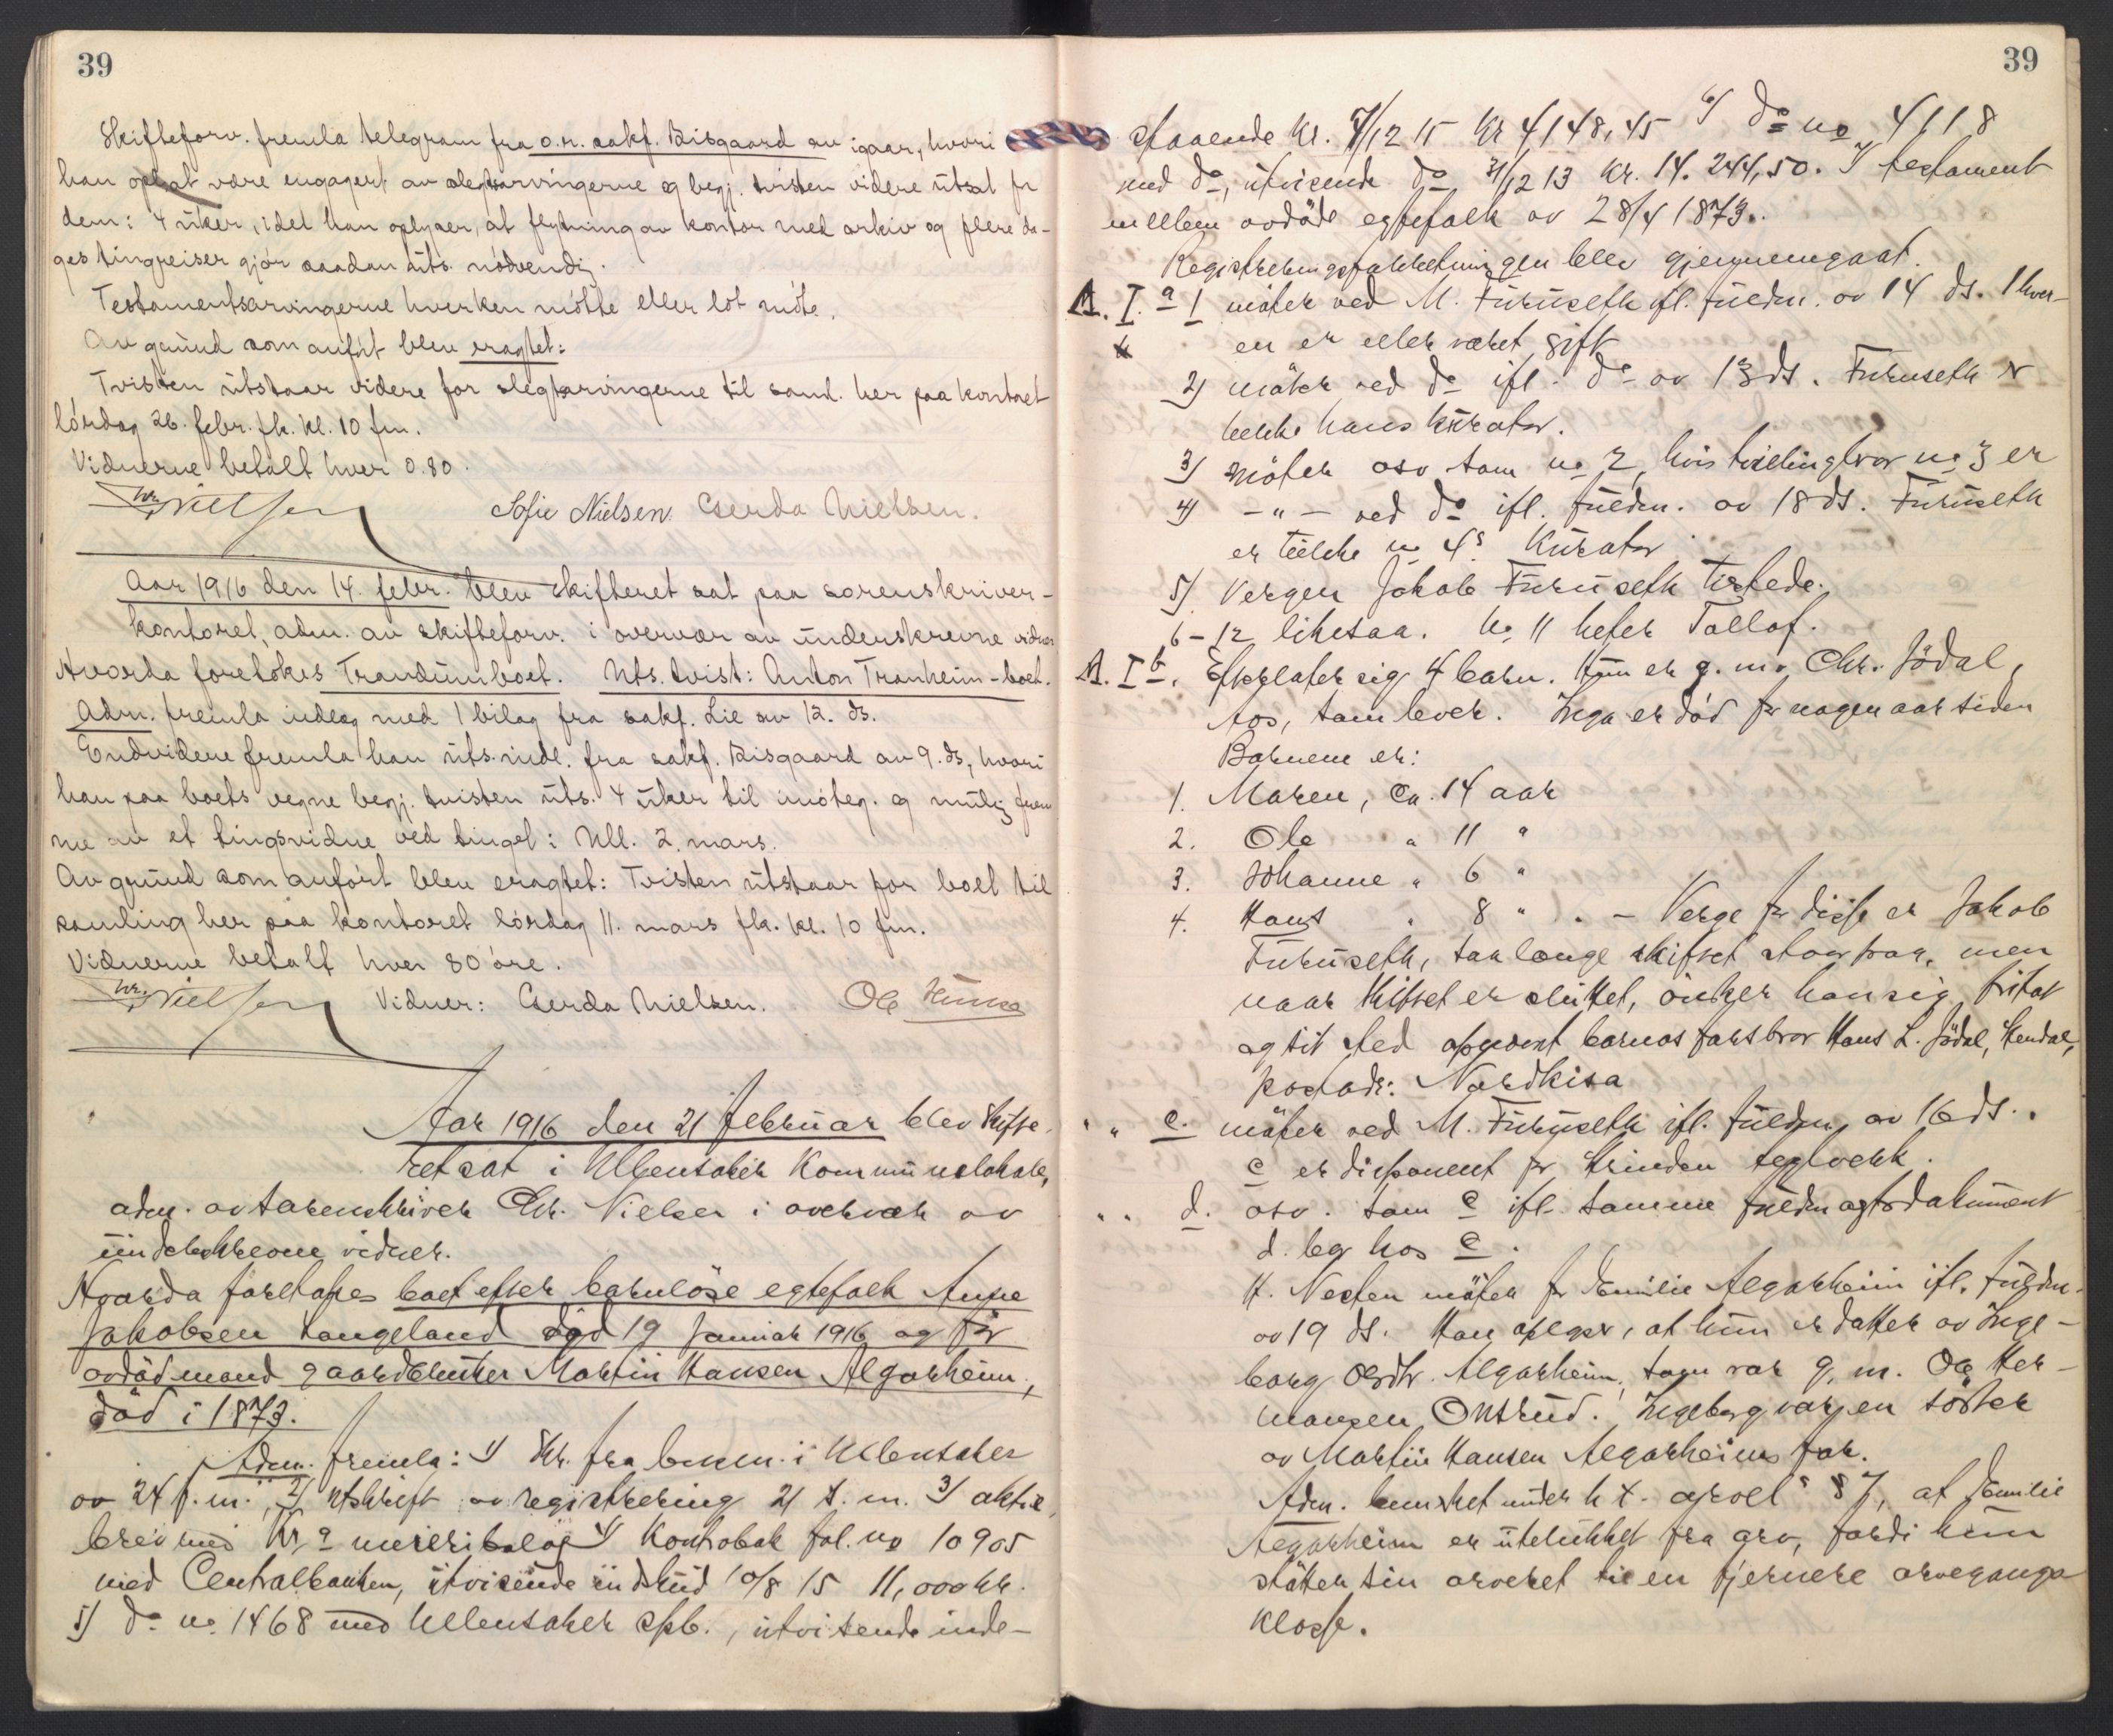 39
Skifteforv. fremla telegram fra o.r. sakf. Bisgaard av igaar, hvori
han oplyst være engagert av slegtsarvingerne og begj. tvisten videre utsat for
dem: 4 uker, idet han oplyser, at flytning av kontor med arkiv og flere da-
ges tingreiser gjør saadan uts. nødvendig.
Testamentsarvingerne hverken møtte eller lot møte.
Av grund som anført blev eragtet:
Tvisten utstaar videre for slegtsarvingerne til saml. her paa kontoret
lördag 26. febr. fk. kl. 10 fm.
Vidnerne betalt hver 0.80.
Chr. Nielsen Sofie Nielsen. Gerda Nielsen.
Aar 1916 den 14. febr. blev skifteret sat paa sorenskriver-
kontoret, adm. av skifteforv. i overvær av underskrevne vidner
Hvorda foretokes Trandumboet. Uts. tvist: Anton Tranheim-boet.
Adm. fremla indlæg med 1 bilag fra sakf. Lie av 12. ds.
Endvidere fremla han uts. indl. fra sakf. Bisgaard av 9. ds, hvori
han paa boets vegne begj. tvisten uts. 4 uker til imøteg. og mulig frem
me av et tingsvidne ved tinget i Ull. 2. mars.
Av grund som anført blev eragtet: Tvisten utstaar for boet til
samling her paa kontoret lördag 11. mars fk. kl. 10 fm.
Vidnerne betalt hver 80 øre.
Chr. Nielsen Vidner: Gerda Nielsen. Ole
Aar 1916 den 21 februar blev skifte-
ret sat i Ullensaker Kommunelokale,
adm. av sorenskriver Chr. Nielsen i overvær av
underskrevne vidner.
Hvorda foretokes boet efter barnløse egtefolk Anne
Jakobsen Haugeland død 19 januar 1916 og før
avdød mand gaardbruker Martin Hansen Algarheim,
død i 1873.
Adm. fremla: 1) Skr. fra lensm. i Ullensaker
av 24 f.m. 2) utskrift av registrering 21 s.m. 3) aktie
brev med kr 2 meieribolag 4) Kontrabok fol. no 10905
med Centralbanken, utvisende indskud 10/8 15 11,000 kr.
5) do no. 1468 med Ullensaker spb., utvisende inde-
39
staaende kl. 7/12 15 kr 4148,45 6) do no 4118
med do, utvisende do 31/12 13 kr. 14.244,50. 7) testament
mellem avdøde egtefolk av 28/4 1873.
Registreringsforretningen blev gjennemgaat.
A. I. a 1 møter ved M. Furuseth ifl. fuldm. av 14 ds. 1 hver-
en er eller været gift
2) møter ved do ifl. do av 13 ds. Furuseth er
like hans kurator.
3) møter osv som no 2, hvis tvillingbror no 3 er
4) -"- ved do ifl. fuldm. av 18 ds. Furuseth
er like no 4s kurator
5) Vergen Jakob Furuseth tilstede.
6-12 likesaa. No 11 heter Tollof.
A. I b. Efterlater sig 4 barn. Hun er g. m. Chr. Jödal,
Aos, som lever. Inga er död for nogen aar siden
Barnene er:
1. Maren, ca. 14 aar
2. Ole " 11 "
3. Johanne " 6 "
4. Hans " 8 " . - Verge for disse er Jakob
Furuseth, saa længe skiftet staar paa, men
naar skiftet er sluttet, ønsker han sig fritat
og sit sted opnævnt barnas farsbror Hans L. Jödal, Hendal,
postadr: Nordkisa
" " c. møter ved M. Furuseth ifl. fuldm. av 16 ds.
c er disponent for Strinden teglverk.
" " d. osv. som c ifl. samme fuldmagtsdokument
d. bor hos c.
H. Nesten møter for Emilie Algarheim ifl. fuldm.
av 19 ds. Han oplyser, at hun er datter av Inge-
borg Olsdtr. Algarheim, som var g. m. Ole Her-
mansen Onsrud. Ingeborg var en søster
av Martin Hansen Algarheims far.
Adm. bemerket under h. t. arvel s § 7, at Emilie
Algarheim er utelukket fra arv, fordi hun
støtter sin arveret til en fjernere arvegangs
klasse.